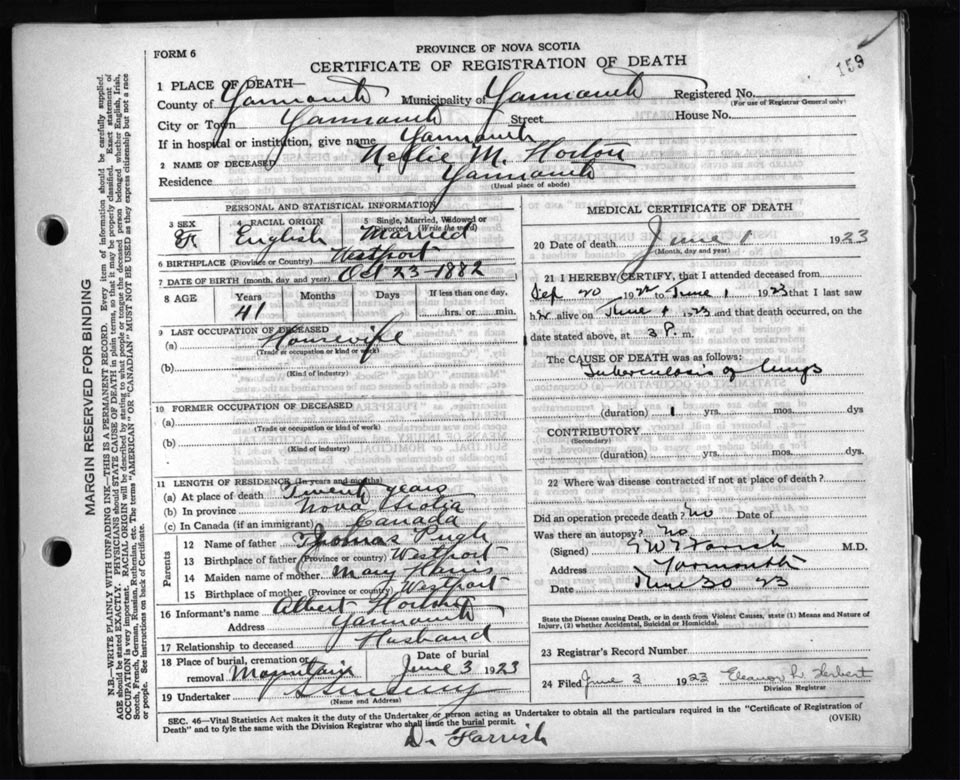 FORM 6
PROVINCE OF NOVA SCOTIA
CERTIFICATE OF REGISTRATION OF DEATH
159
1 PLACE OF DEATH—
County of Yarmouth Municipality of Yarmouth Registered No.
(For use of Registrar General only)
City or Town Yarmouth Street House No.
If in hospital or institution, give name Yarmouth
2 NAME OF DECEASED Nellie M. Horton
Residence Yarmouth
(Usual place of abode)
PERSONAL AND STATISTICAL INFORMATION
3 SEX
4 RACIAL ORIGIN English
5 Single, Married, Widowed or Divorced (Write the word) Married
6 BIRTHPLACE (Province or Country) Westport
7 DATE OF BIRTH (month, day and year) Oct 23-1882
8 AGE Years Months Days If less than one day,
41 hrs. or min.
9 LAST OCCUPATION OF DECEASED
(a) Housewife
(Trade or occupation or kind of work)
(b)
(Kind of industry)
10 FORMER OCCUPATION OF DECEASED
(a)
(Trade or occupation or kind of work)
(b)
(Kind of industry)
11 LENGTH OF RESIDENCE (In years and months)
(a) At place of death Twenty years
(b) In province Nova Scotia
(c) In Canada (if an immigrant) Canada
Parents
12 Name of father Thomas Pugh
13 Birthplace of father (Province or country) Westport
14 Maiden name of mother Mary Harris
15 Birthplace of mother (Province or country) Westport
16 Informant's name Albert Horton
Address Yarmouth
17 Relationship to deceased Husband
18 Place of burial, cremation or removal Mountain
Date of burial June 3 1923
19 Undertaker
(Name and Address)
MEDICAL CERTIFICATE OF DEATH
20 Date of death June 1 1923
(Month, day and year)
21 I HEREBY CERTIFY, that I attended deceased from
Sep. 20 1922 to June 1 1923 that I last saw
her alive on June 1 1923 and that death occurred, on the
date stated above, at 3 P. m.
The CAUSE OF DEATH was as follows:
Tuberculosis of lungs
(duration) 1 yrs. mos. dys
CONTRIBUTORY
(Secondary)
(duration) yrs. mos. dys.
22 Where was disease contracted if not at place of death?
Did an operation precede death? no Date of
Was there an autopsy? no
(Signed) M.D.
Address Yarmouth
June 30 23
State the Disease causing Death, or in death from Violent Causes, state (1) Means and Nature of
Injury, (2) whether Accidental, Suicidal or Homicidal.
23 Registrar's Record Number
24 Filed June 3 1923 Eleanor L. Herbert
Division Registrar
SEC. 46—Vital Statistics Act makes it the duty of the Undertaker or person acting as Undertaker to obtain all the particulars required in the "Certificate of Registration of
Death" and to file the same with the Division Registrar who shall issue the burial permit.
(OVER)
D. Farrish
MARGIN RESERVED FOR BINDING
N.B—WRITE PLAINLY WITH UNFADING INK—THIS IS A PERMANENT RECORD. Every item of information should be carefully supplied.
AGE should be stated EXACTLY. PHYSICIANS should STATE CAUSE OF DEATH in plain terms, so that it may be properly classified. Exact statement of
OCCUPATION is very important. RACIAL ORIGIN will be described by stating to what people or tongue the deceased person belonged whether English, Irish,
Scotch, French, German, Russian, Ruthenian, etc. The terms "AMERICAN" OR "CANADIAN" MUST NOT BE USED as they express citizenship but not a race
or people. See instructions on back of Certificate.